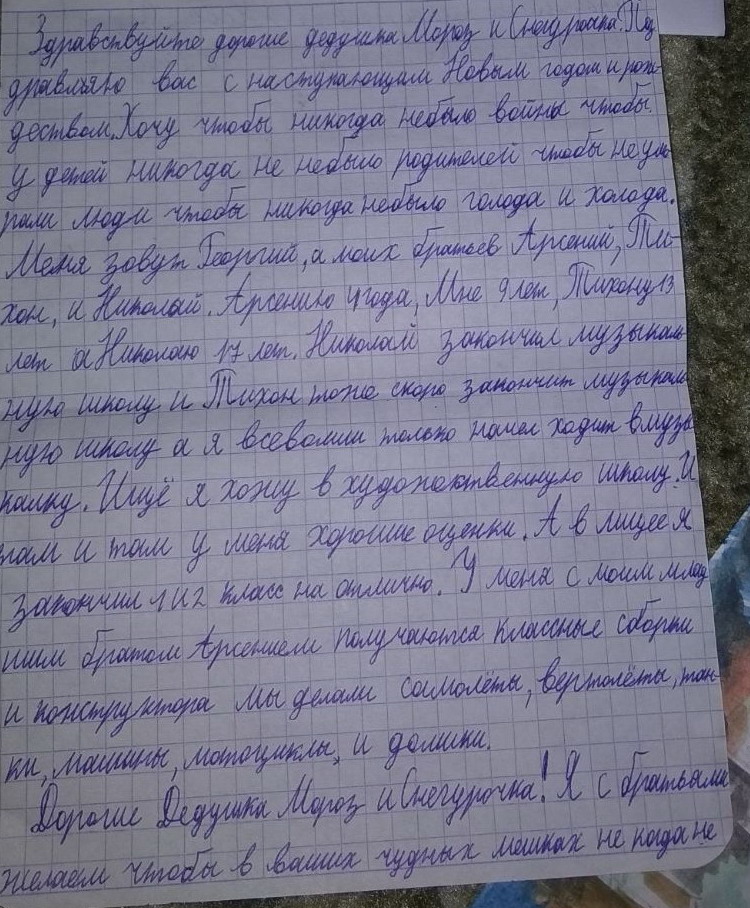 Здравствуйте дорогие дедушка Мороз и Снегурочка. Поз
дравляю вас с наступающим Новым годом и рож
деством. Хочу чтобы никогда небыло войны чтобы
у детей никогда не небыло родителей чтобы не уми
рали люди чтобы никогда небыло голода и холода.
Меня зовут Георгий, а моих братьев Арсений, Ти-
хон, и Николай. Арсению 4 года, Мне 9 лет, Тихону 13
лет а Николаю 17 лет. Николай закончил музыкаль
ную школу и Тихон тоже скоро закончит музыкаль
ную школу а я только начел ходит в музы
калку. Ищё я хожу в художественную школу. И
там и там у меня хорошие оценки. А в лицее я
закончил 1 и 2 класс на отлично. У меня с моим млад
шим братом Арсением получаются классные сборки
и конструктора мы делали самолёты, вертолёты, тан-
ки, машины, мотоциклы, и домики.
Дорогие Дедушка Мороз и Снегурочка! Я с братьями
желаем чтобы в ваших чудных мешках не когда не